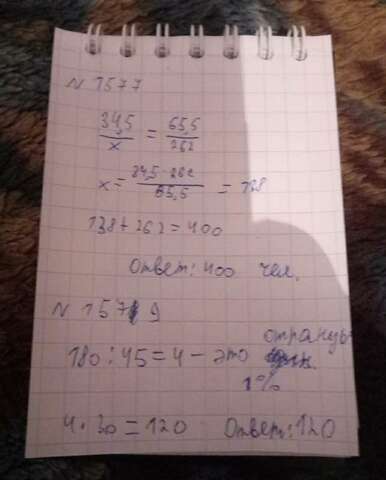 N 1577
34,5/x = 65,5/262
x = 34,5 · 262/65,5 = 138
138 + 262 = 400
Ответ: 400 чел.
N 1579
180 : 45 = 4 – это
1%
4 · 30 = 120 Ответ: 120